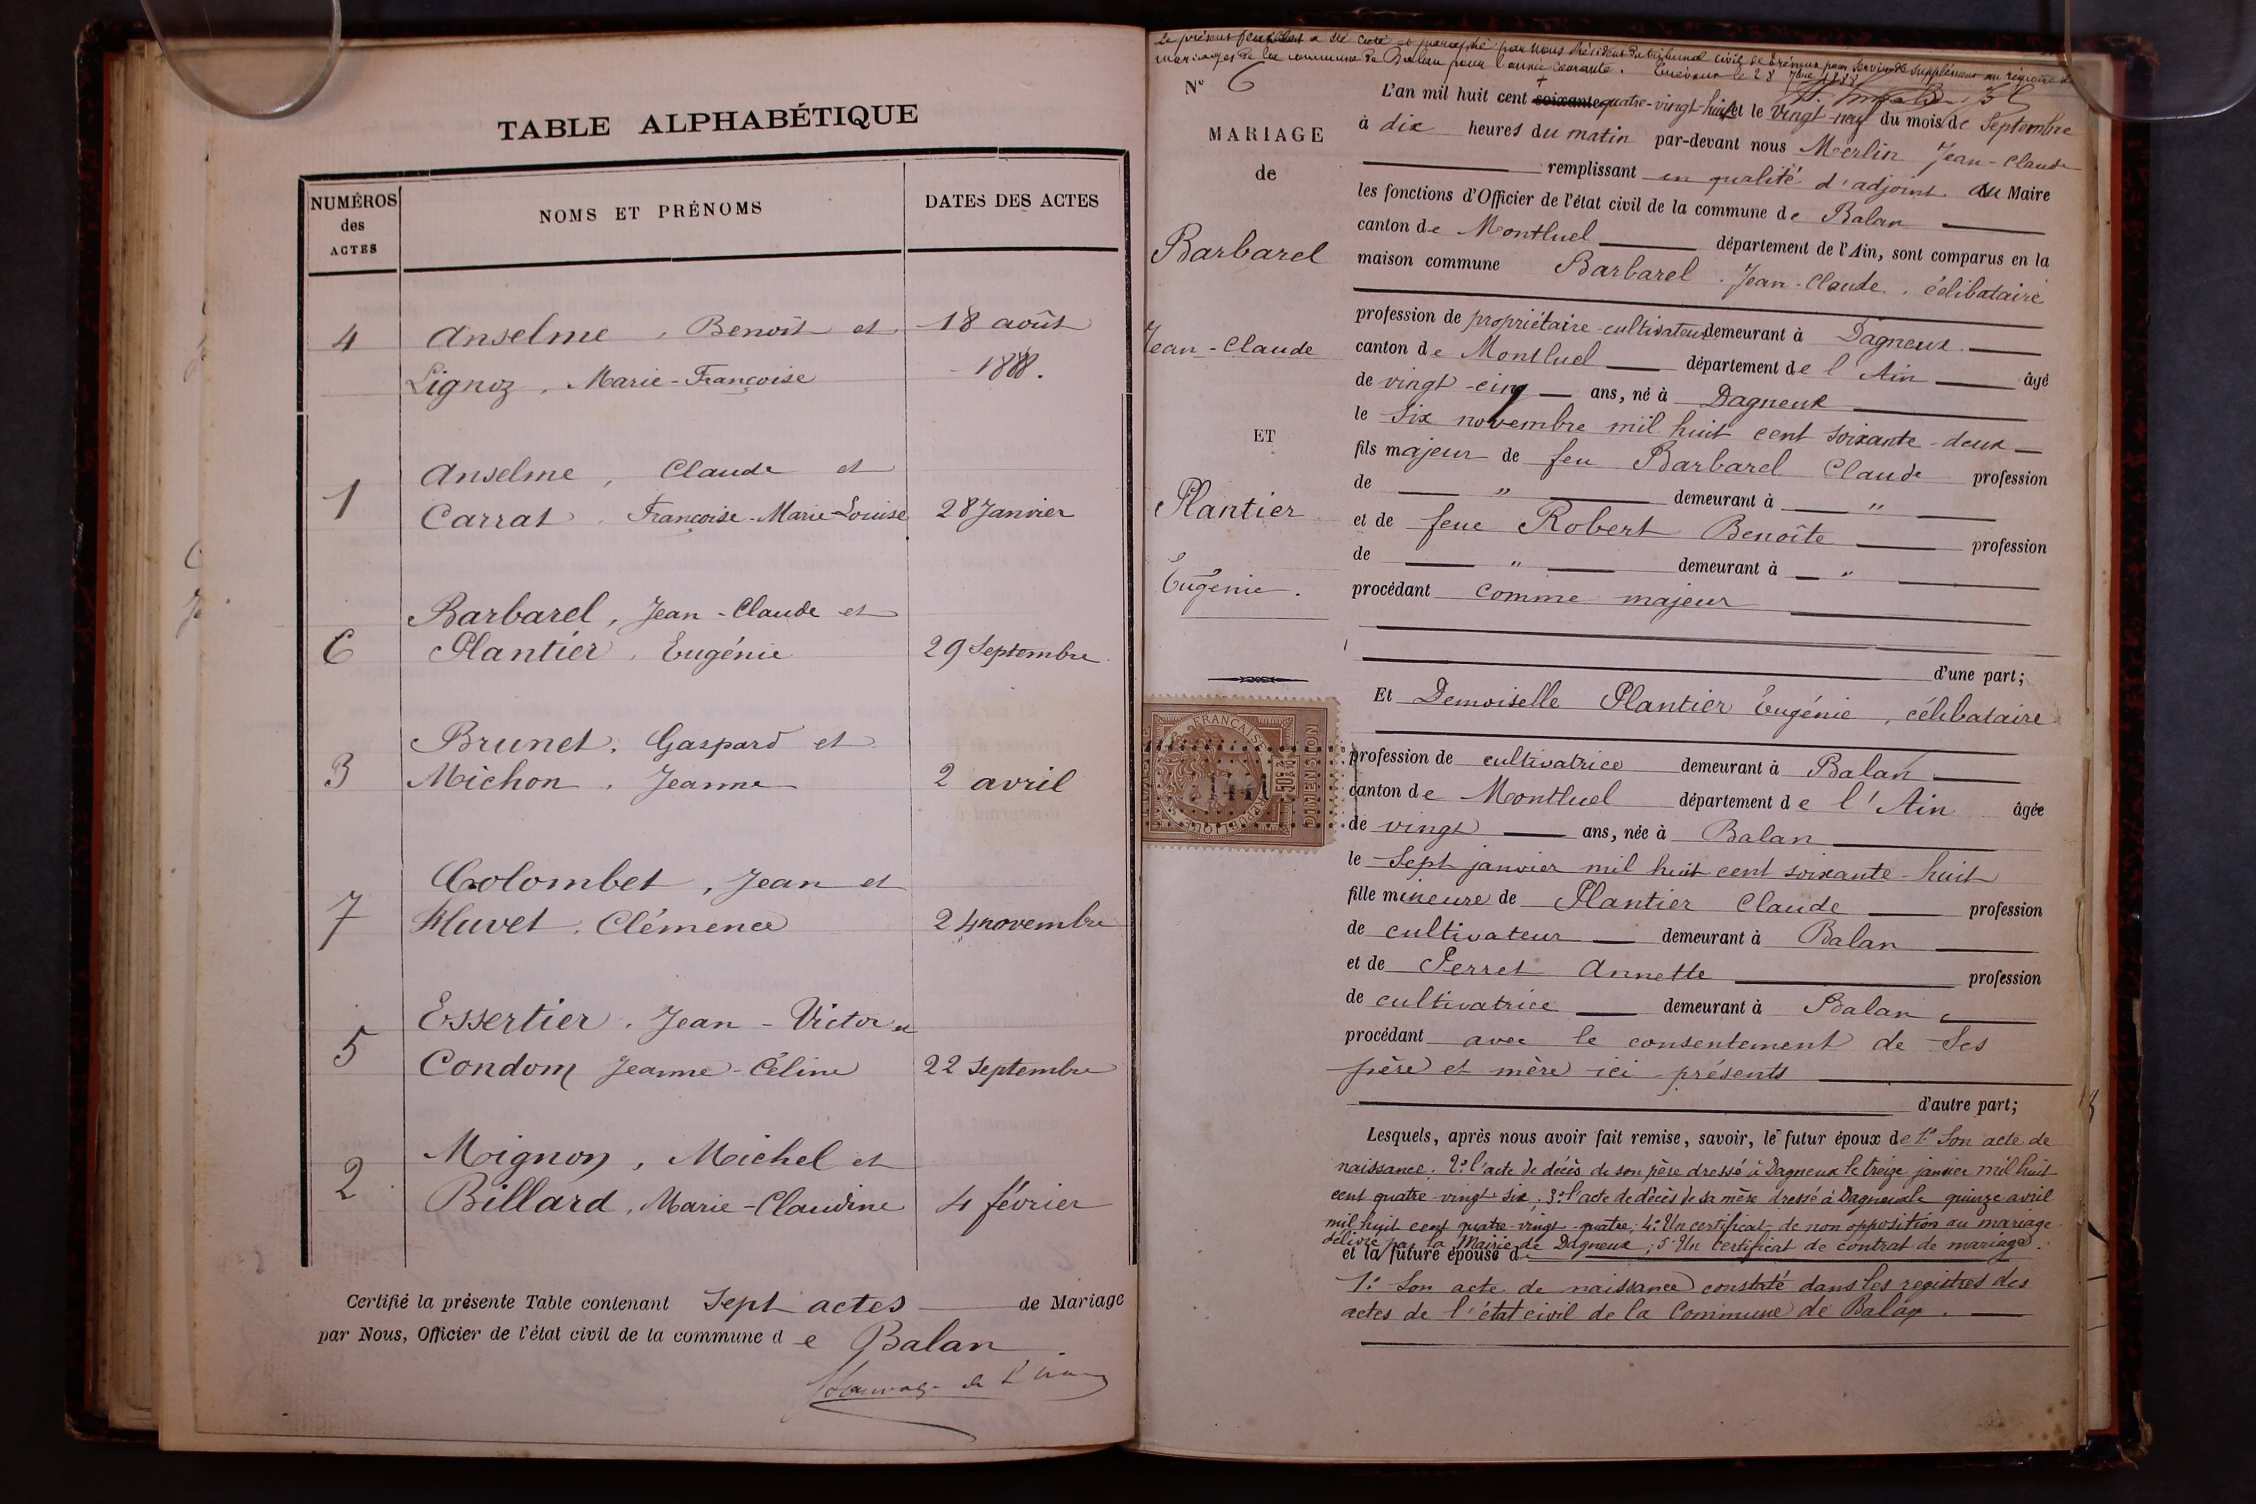 TABLE ALPHABÉTIQUE
NUMÉROS des ACTES
NOMS ET PRÉNOMS
DATES DES ACTES
4 Anselme, Benoît et 18 août
Lignoz, Marie-Françoise 1888.
Anselme, Claude et
1 Carrat, Françoise-Marie-Louise 28 Janvier
Barbarel, Jean-Claude et
6 Plantier, Eugénie 29 Septembre
Brunet, Gaspard et
3 Michon, Jeanne 2 avril
Colombet, Jean et
7 Huvet, Clémence 24 novembre
Essertier, Jean-Victor et
5 Condom Jeanne-Céline 22 Septembre
Moignon, Michel et
2 Billard, Marie-Claudine 4 février
Certifié la présente Table contenant Sept actes de Mariage
par Nous, Officier de l'état civil de la commune de Balan
Le présent feuillet a été coté et paraphé par nous Président du tribunal civil de Trévoux pour servir de supplément au registre de
mariages de la commune de Balan pour l'année courante. Trévoux le 28 7bre 1888
N° 6
MARIAGE
de
Barbarel
Jean-Claude
ET
Plantier
Eugénie.
FRANÇAISE
50 c
DIMENSION
L'an mil huit cent soixante quatre-vingt-huit et le vingt-neuf du mois de Septembre
à dix heures du matin par-devant nous Merlin Jean-Claude
remplissant en qualité d'adjoint au Maire
les fonctions d'Officier de l'état civil de la commune de Balan
canton de Montluel département de l'Ain, sont comparus en la
maison commune Barbarel Jean-Claude, célibataire
profession de propriétaire-cultivateur demeurant à Dagneux
canton de Montluel département de l'Ain âgé
de vingt-cinq ans, né à Dagneux
le Six novembre mil huit cent soixante-deux
fils majeur de feu Barbarel Claude profession
de " demeurant à "
et de feue Robert Benoîte profession
de " demeurant à "
procédant comme majeur
d'une part;
Et Demoiselle Plantier Eugénie, célibataire
profession de cultivatrice demeurant à Balan
canton de Montluel département de l'Ain âgée
de vingt ans, née à Balan
le Sept janvier mil huit cent soixante-huit
fille mineure de Plantier Claude profession
de cultivateur demeurant à Balan
et de Perret Annette profession
de cultivatrice demeurant à Balan
procédant avec le consentement de Ses
père et mère ici présents
d'autre part;
Lesquels, après nous avoir fait remise, savoir, le futur époux de 1° Son acte de
naissance. 2° l'acte de décès de son père dressé à Dagneux le treize janvier mil huit
cent quatre-vingt-six; 3° l'acte de décès de sa mère dressé à Dagneux le quinze avril
mil huit cent quatre-vingt-quatre; 4° Un certificat de non opposition au mariage
délivré par la Mairie de Dagneux; 5° Un certificat de contrat de mariage.
et la future épouse de
1° Son acte de naissance constaté dans les registres des
actes de l'état civil de la Commune de Balan.